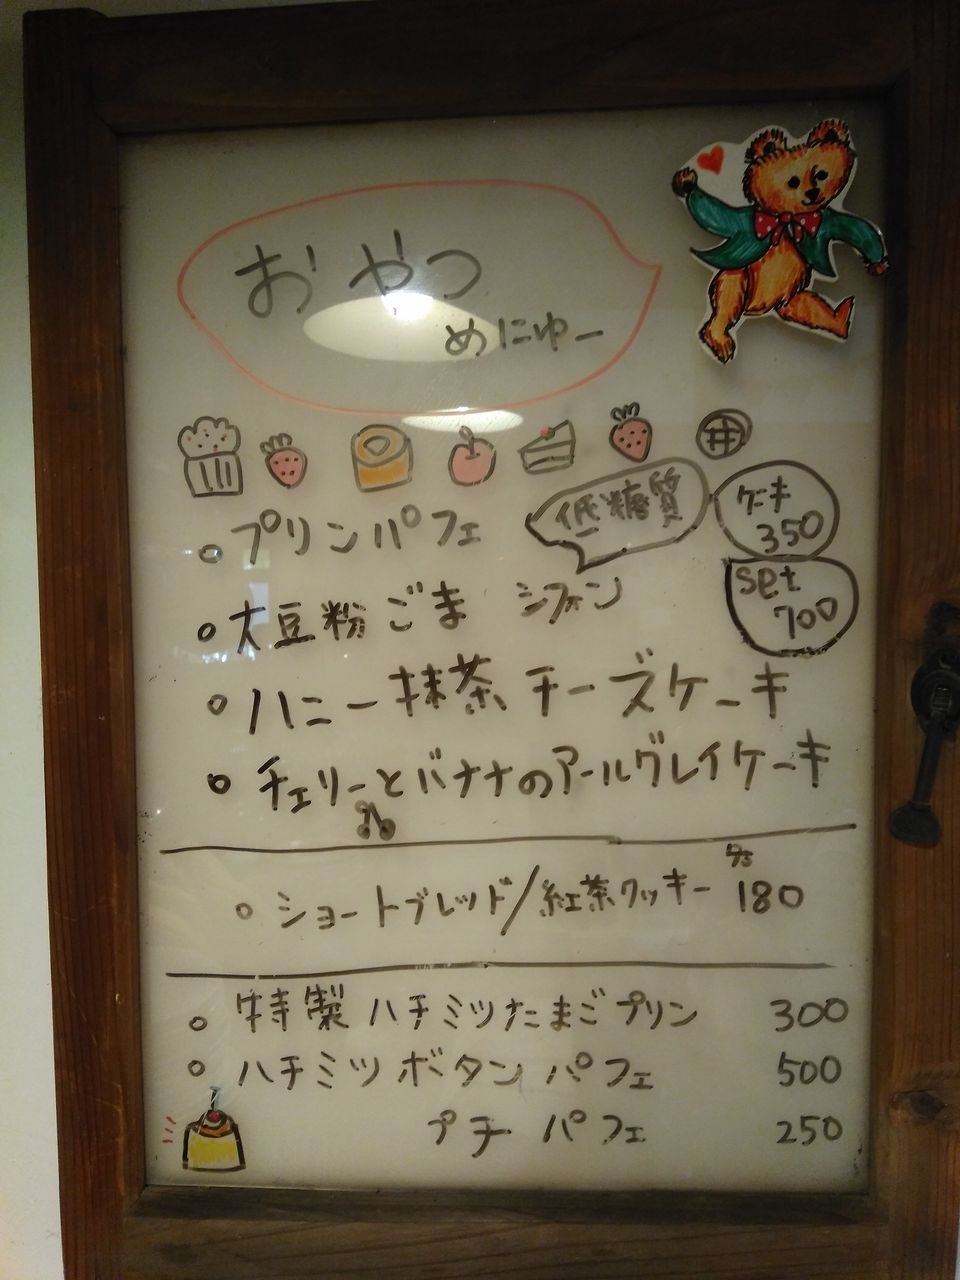 おやつ
めにゅー
プリンパフェ
低糖質
ケーキ
350
set
700
大豆粉 ごま シフォン
ハニー抹茶チーズケーキ
チェリーとバナナのアールグレイケーキ
ショートブレッド/紅茶クッキー 180
特製 ハチミツたまごプリン 300
ハチミツ ボタン パフェ 500
プチ パフェ 250